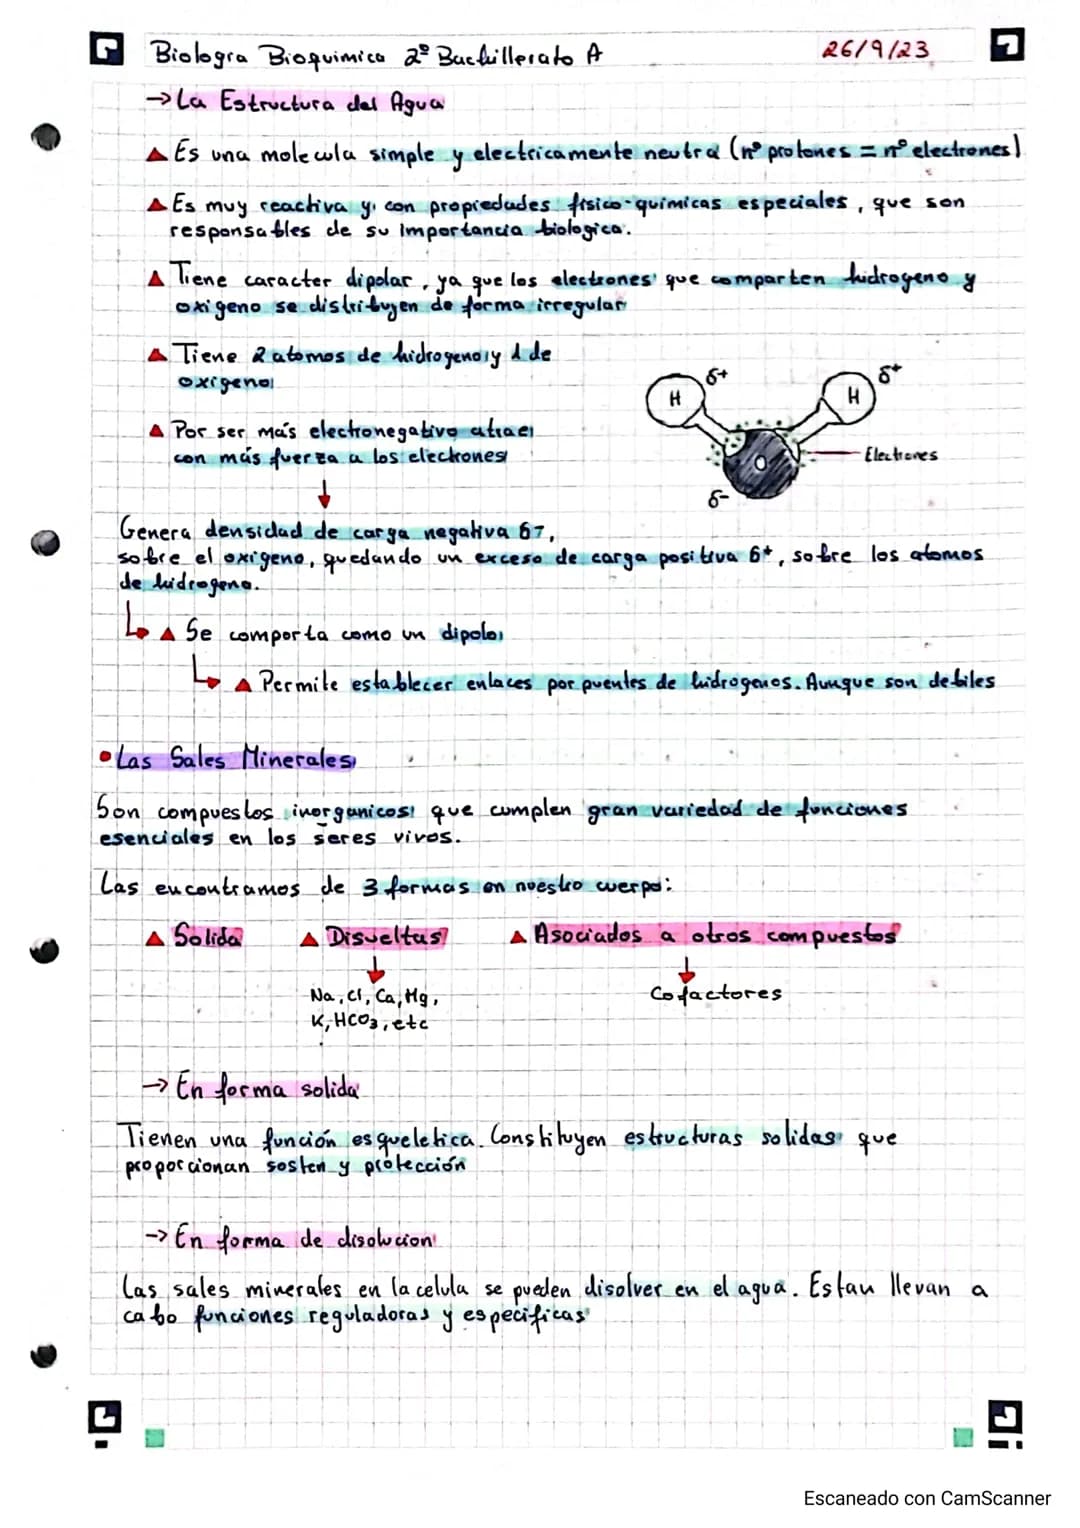 Biologia Bioquimica 2º Bachillerato A
26/9/23
→ La Estructura del Agua
▲ Es una molecula simple y electricamente neutra (nº protones = nº electrones)
▲ Es muy reactiva y con propiedades físico-químicas especiales, que son
responsables de su importancia biologica.
▲ Tiene caracter dipolar, ya que los electrones que comparten hidrogeno y
oxigeno se distribuyen de forma irregular
▲ Tiene 2 atomos de hidrogeno y 1 de
oxigeno
▲ Por ser más electronegativo atrae
con más fuerza a los electrones
↓
H δ+ H δ+
O
Electrones
δ-
Genera densidad de carga negativa δ-,
sobre el oxigeno, quedando un exceso de carga positiva δ+, sobre los atomos
de hidrogeno.
↳ ▲ Se comporta como un dipolo
↳ ▲ Permite establecer enlaces por puentes de hidrogenos. Aunque son debiles
• Las Sales Minerales
Son compuestos inorganicos que cumplen gran variedad de funciones
esenciales en los seres vivos.
Las encontramos de 3 formas en nuestro cuerpo:
▲ Solida ▲ Disueltas ▲ Asociados a otros compuestos
↓ ↓
Na, Cl, Ca, Mg, Cofactores
K, HCO3, etc
→ En forma solida
Tienen una función esqueletica. Constituyen estructuras solidas que
proporcionan sosten y protección
→ En forma de disolucion
Las sales minerales en la celula se pueden disolver en el agua. Estan llevan a
cabo funciones reguladoras y especificas
Escaneado con CamScanner